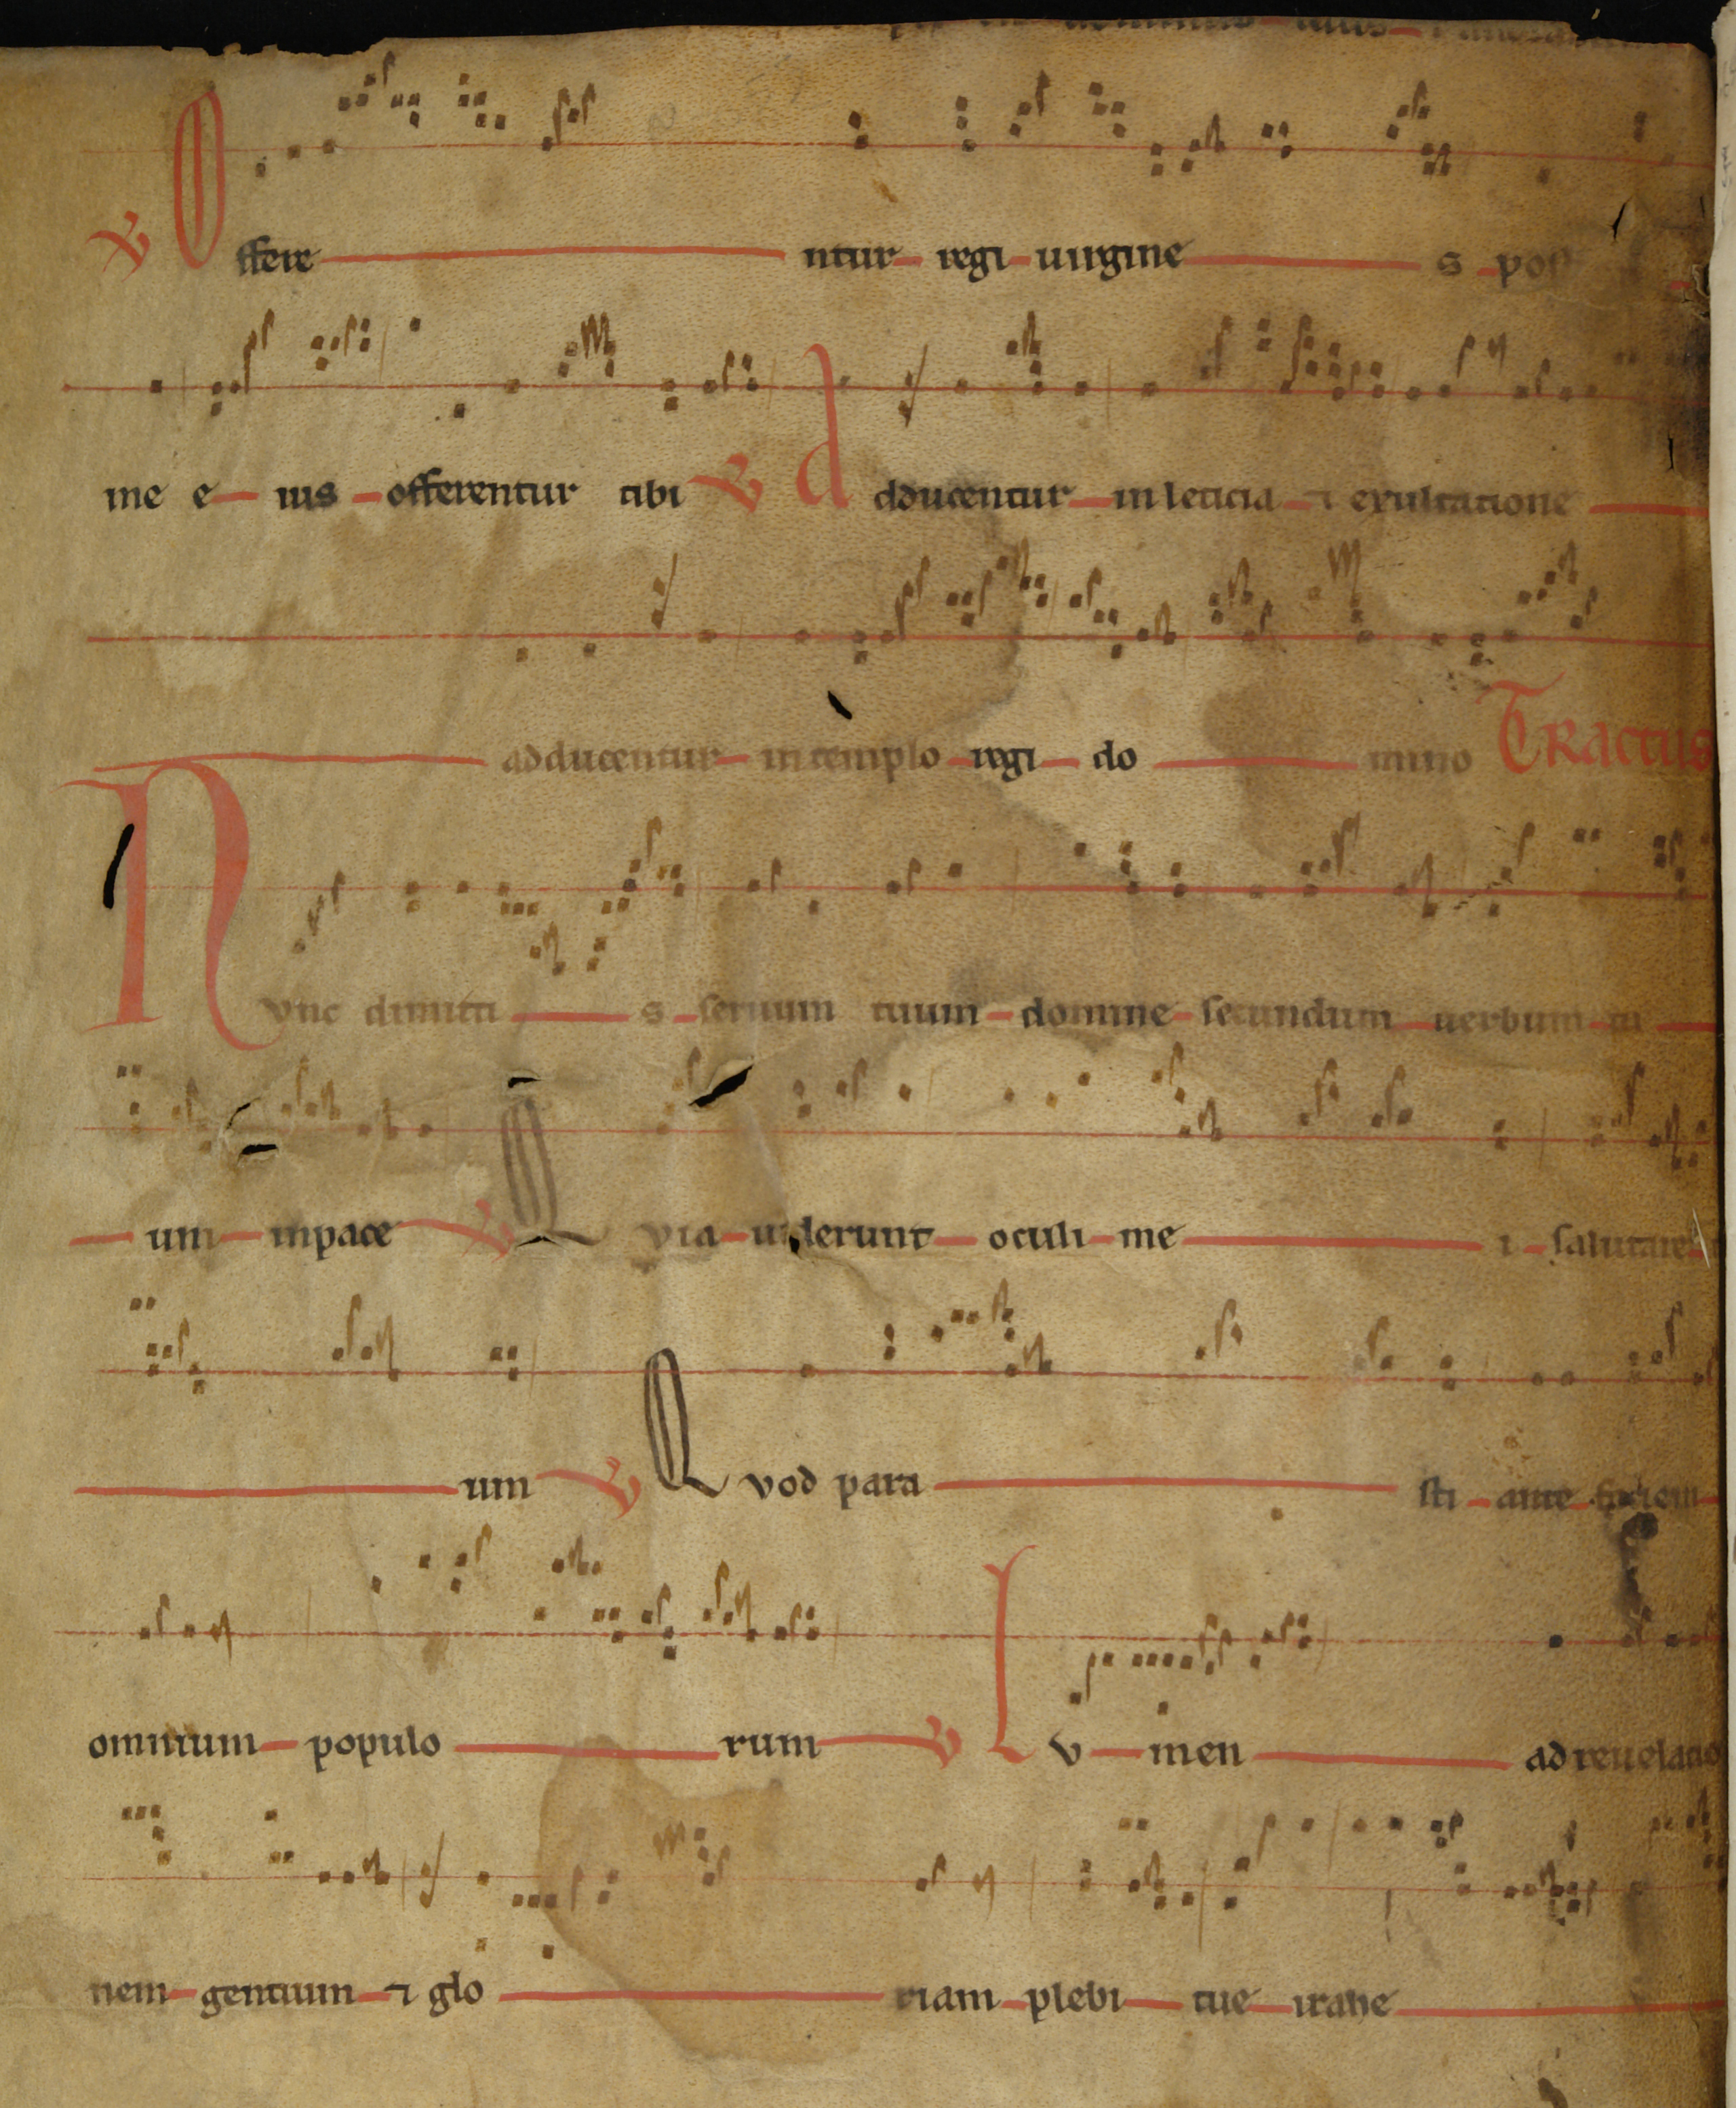 ℣ Offerentur regi uirgines post
me eius offerentur tibi ℣ Adducentur in leticia ⁊ exultatione
adducentur in templo regi domino Tractus
Nvnc dimittis seruum tuum domine secundum uerbum tu
um in pace ℣ Qvia uiderunt oculi mei salutare
um ℣ Qvod parasti ante faciem
omnium populorum ℣ Lvmen ad reuelatio
nem gentium ⁊ gloriam plebi tue